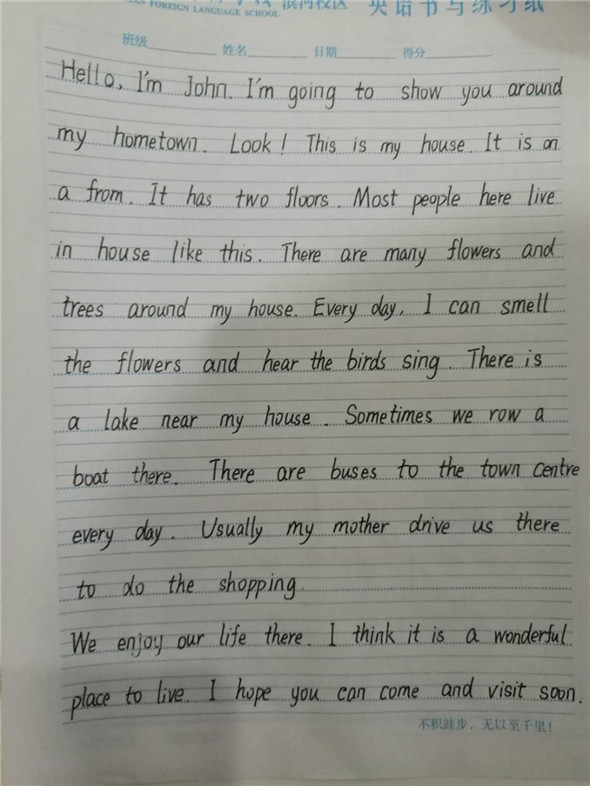 FOREIGN LANGUAGE SCHOOL 滨河校区 英语书写练习纸
班级 姓名 日期 得分
Hello, I'm John. I'm going to show you around
my hometown. Look! This is my house. It is on
a from. It has two floors. Most people here live
in house like this. There are many flowers and
trees around my house. Every day, I can smell
the flowers and hear the birds sing. There is
a lake near my house. Sometimes we row a
boat there. There are buses to the town centre
every day. Usually my mother drive us there
to do the shopping
We enjoy our life there. I think it is a wonderful
place to live. I hope you can come and visit soon.
不积跬步，无以至千里！